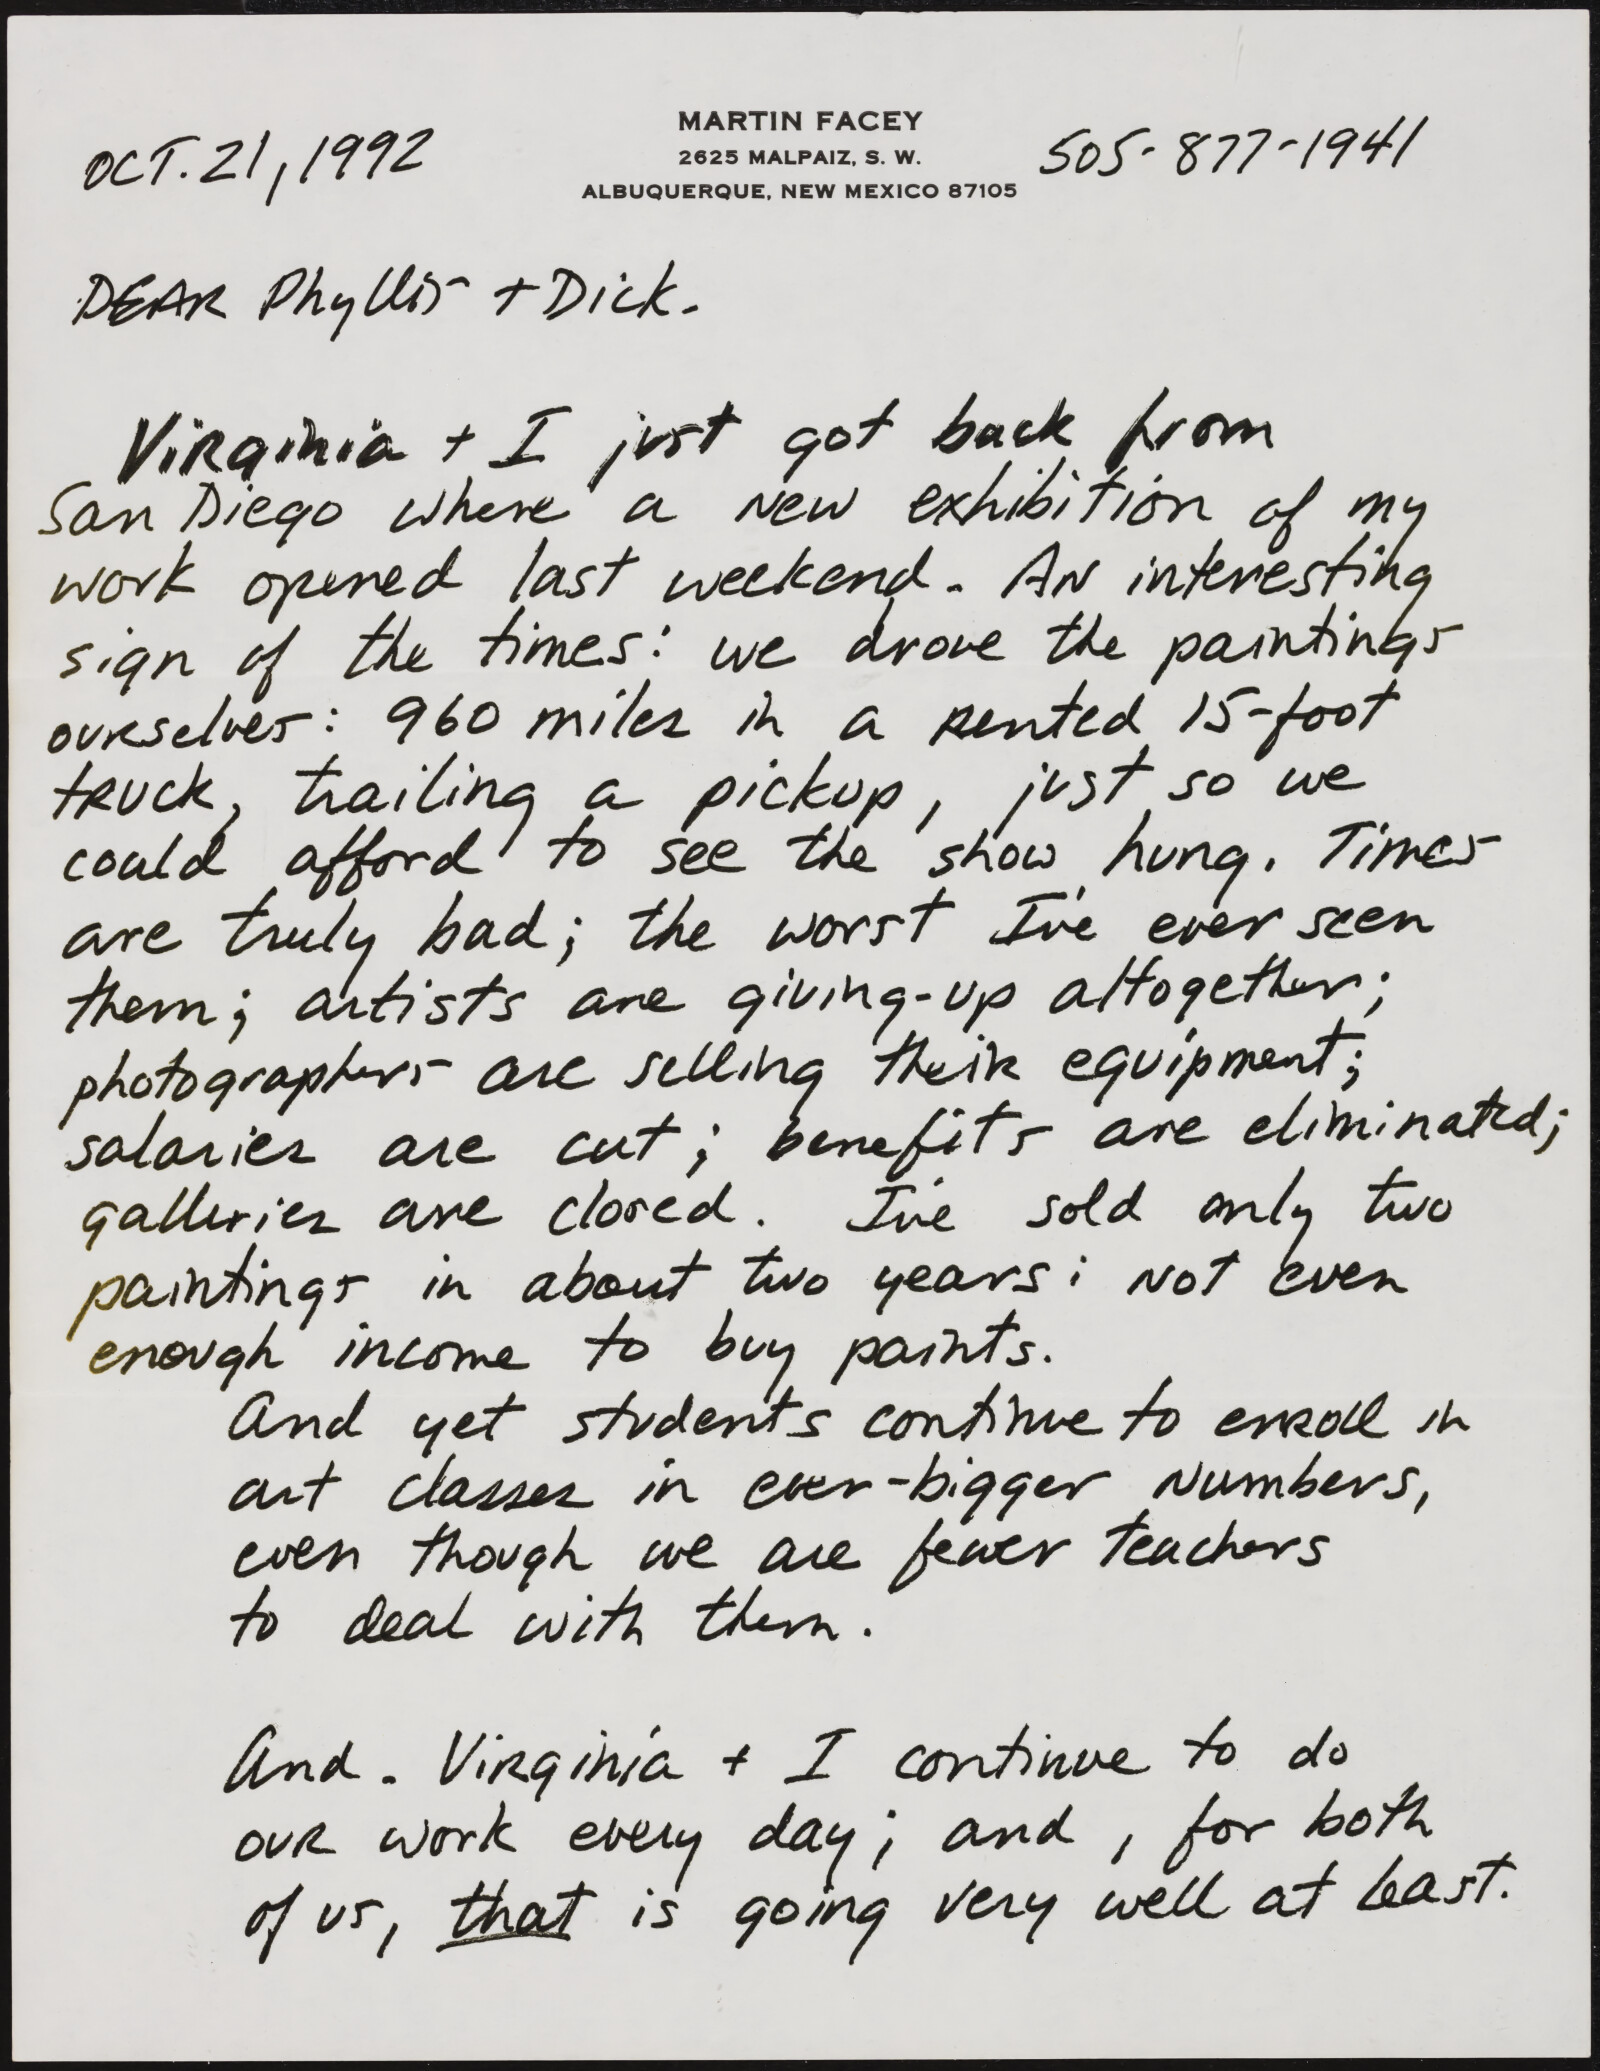 MARTIN FACEY
2625 MALPAIZ, S. W.
ALBUQUERQUE, NEW MEXICO 87105
OCT. 21, 1992
505-877-1941
DEAR Phyllis + Dick.
Virginia + I just got back from
San Diego where a new exhibition of my
work opened last weekend. An interesting
sign of the times: we drove the paintings
ourselves: 960 miles in a rented 15-foot
truck, trailing a pickup, just so we
could afford to see the show hung. Times
are truly bad; the worst I've ever seen
them; artists are giving-up altogether;
photographers are selling their equipment;
salaries are cut; benefits are eliminated;
galleries are closed. I've sold only two
paintings in about two years: not even
enough income to buy paints.
And yet students continue to enroll in
art classes in ever-bigger numbers,
even though we are fewer teachers
to deal with them.
And. Virginia + I continue to do
our work every day; and, for both
of us, that is going very well at least.